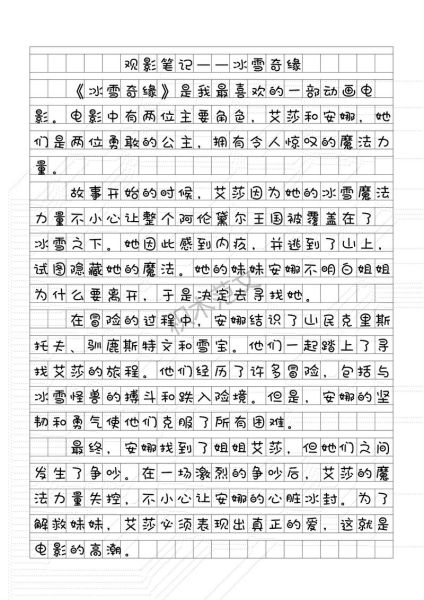 观影笔记——冰雪奇缘
《冰雪奇缘》是我最喜欢的一部动画电
影。电影中有两位主要角色，艾莎和安娜，她
们是两位勇敢的公主，拥有令人惊叹的魔法力
量。
故事开始的时候，艾莎因为她的冰雪魔法
力量不小心让整个阿伦黛尔王国被覆盖在了
冰雪之下。她因此感到内疚，并逃到了山上，
试图隐藏她的魔法。她的妹妹安娜不明白姐姐
为什么要离开，于是决定去寻找她。
在冒险的过程中，安娜结识了山民克里斯
托夫、驯鹿斯特文和雪宝。他们一起踏上了寻
找艾莎的旅程。他们经历了许多冒险，包括与
冰雪怪兽的搏斗和跌入险境。但是，安娜的坚
韧和勇气使他们克服了所有困难。
最终，安娜找到了姐姐艾莎，但她们之间
发生了争吵。在一场激烈的争吵后，艾莎的魔
法力量失控，不小心让安娜的心脏冰封。为了
解救妹妹，艾莎必须表现出真正的爱，这就是
电影的高潮。